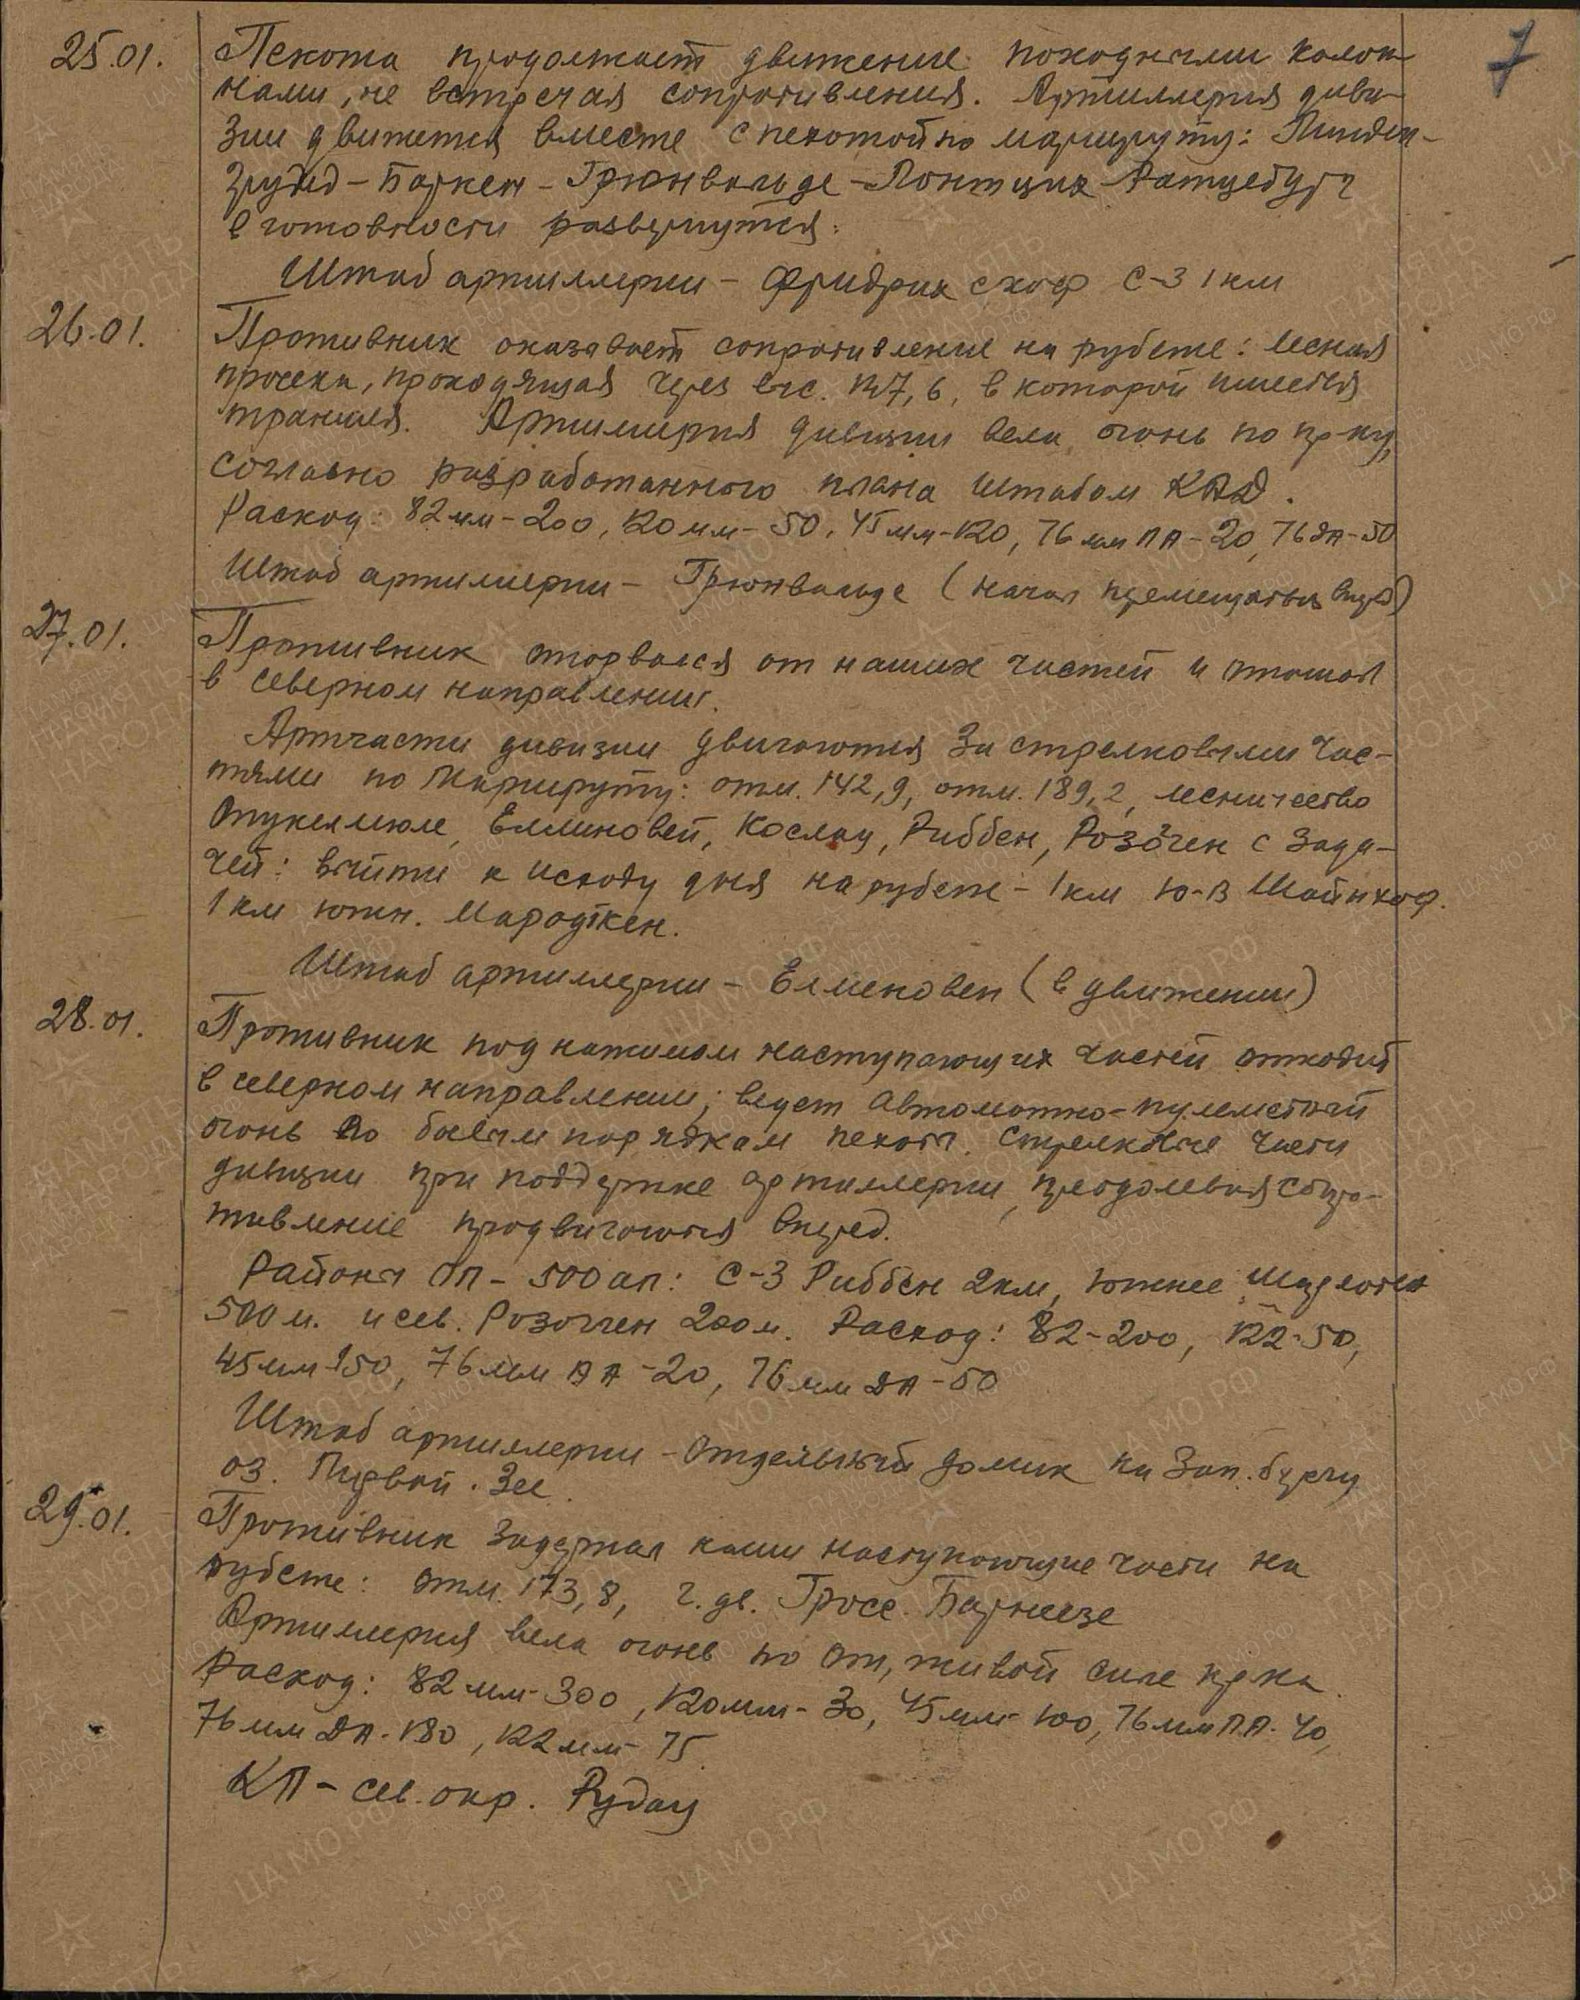 7
25.01. Пехота продолжает движение походными колон-
нами, не встречая сопротивления. Артиллерия диви-
зии движется вместе с пехотой по маршруту: Линден-
- Баркен - Грюнвальде - - Ратцебург
в готовности развернутся.
Штаб артиллерии - Фридрихсхоф С-З 1 км
26.01. Противник оказывает сопротивление на рубеже: лесная
просека, проходящая через выс. 127,6, в которой имеется
траншея. Артиллерия дивизии вела огонь по пр-ку,
согласно разработанного плана штабом КАД.
Расход: 82 мм - 200, 120 мм - 50, 45 мм - 120, 76 мм ПА - 20, 76 ДА - 50
Штаб артиллерии - Грюнвальде (начал перемещаться вперед)
27.01. Противник оторвался от наших частей и отошол
в северном направлении.
Артчасти дивизии двигаются за стрелковыми час-
тями по маршруту: отм. 142,9, отм. 189,2, лесничество
Елминовен, Кослау, Риббен, Розоген с зада-
чей: выйти к исходу дня на рубеж - 1 км Ю-В Шайнхоф.
1 км южн. Марадткен.
Штаб артиллерии - Елменовен (в движении)
28.01. Противник под нажимом наступающих частей отходит
в северном направлении; ведет автоматно-пулеметный
огонь по боевым порядкам пехоты. Стрелковые части
дивизии при поддержке артиллерии, преодолевая сопро-
тивление продвигаются вперед.
Районы ОП - 500 ап: С-З Риббен 2 км, южнее
500 м. и сев. Розоген 200 м. Расход: 82 - 200, 122 - 50,
45 мм 150, 76 мм ПА - 20, 76 мм ДА - 50
Штаб артиллерии - отдельный домик на зап. берегу
оз. Зее.
29.01. Противник задержал наши наступающие части на
рубеже: отм. 173,8, г. дв. Гросс.
Артиллерия вела огонь по от, живой силе пр-ка.
Расход: 82 мм - 300, 120 мм - 30, 45 мм - 100, 76 мм ПА - 40,
76 мм ДА - 180, 122 мм - 75
КП - сев. окр. Рудау